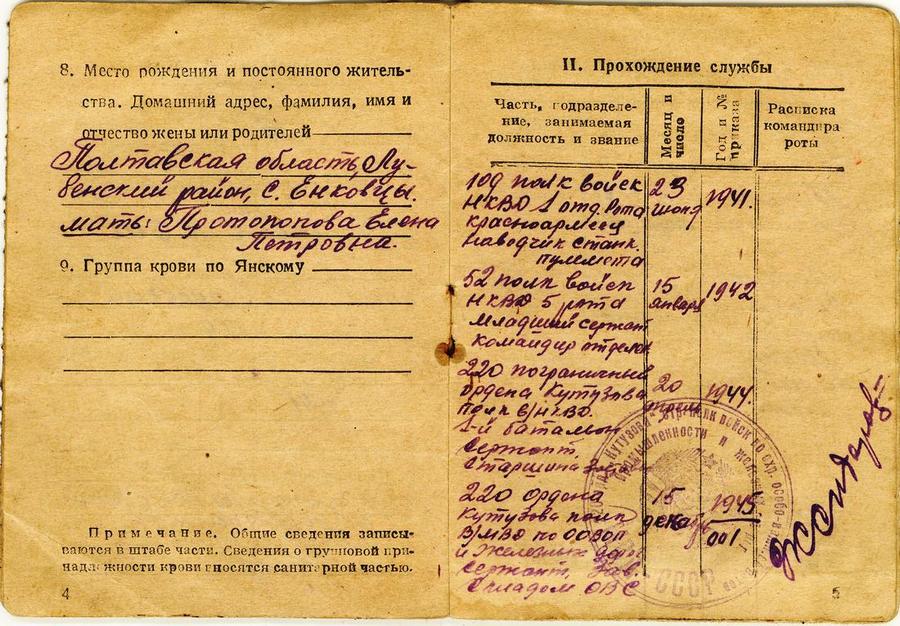 8. Место рождения и постоянного житель-
ства. Домашний адрес, фамилия, имя и
отчество жены или родителей
Полтавская область, Лу-
бенский район, с. Енковцы.
мать: Протопопова Елена
Петровна.
9. Группа крови по Янскому
Примечание. Общие сведения записы-
ваются в штабе части. Сведения о групповой при-
надлежности крови вносятся санитарной частью.
4
II. Прохождение службы
Часть, подразделе-
ние, занимаемая
должность и звание
Месяц и
число
Год и №
приказа
Расписка
командира
роты
109 полк войск 23 1941.
НКВД 1 отд. рота июня
красноармеец
наводчик станк.
пулемета
52 полк войск 15 1942
НКВД 5 рота января
младший сержант
командир отделен
220 пограничный 20 1944
ордена Кутузова апрель
полк в/НКВД.
1-й батальон
Сержант.
Старшина
220 ордена 15 1945
Кутузова полк декабр 001
В/МВД по ООВОП
и железных дорог
Сержант, Зав.
складом ОВС
Кутузова
войск по охр. особо-важных
промышленности и желез
СССР
5